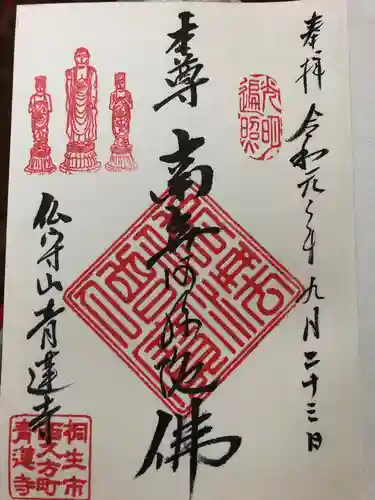 奉拝
令和元年九月二十三日
光明
遍照
本尊
南無阿弥陀佛
仏守山青蓮寺
桐生市
西久方町
青蓮寺